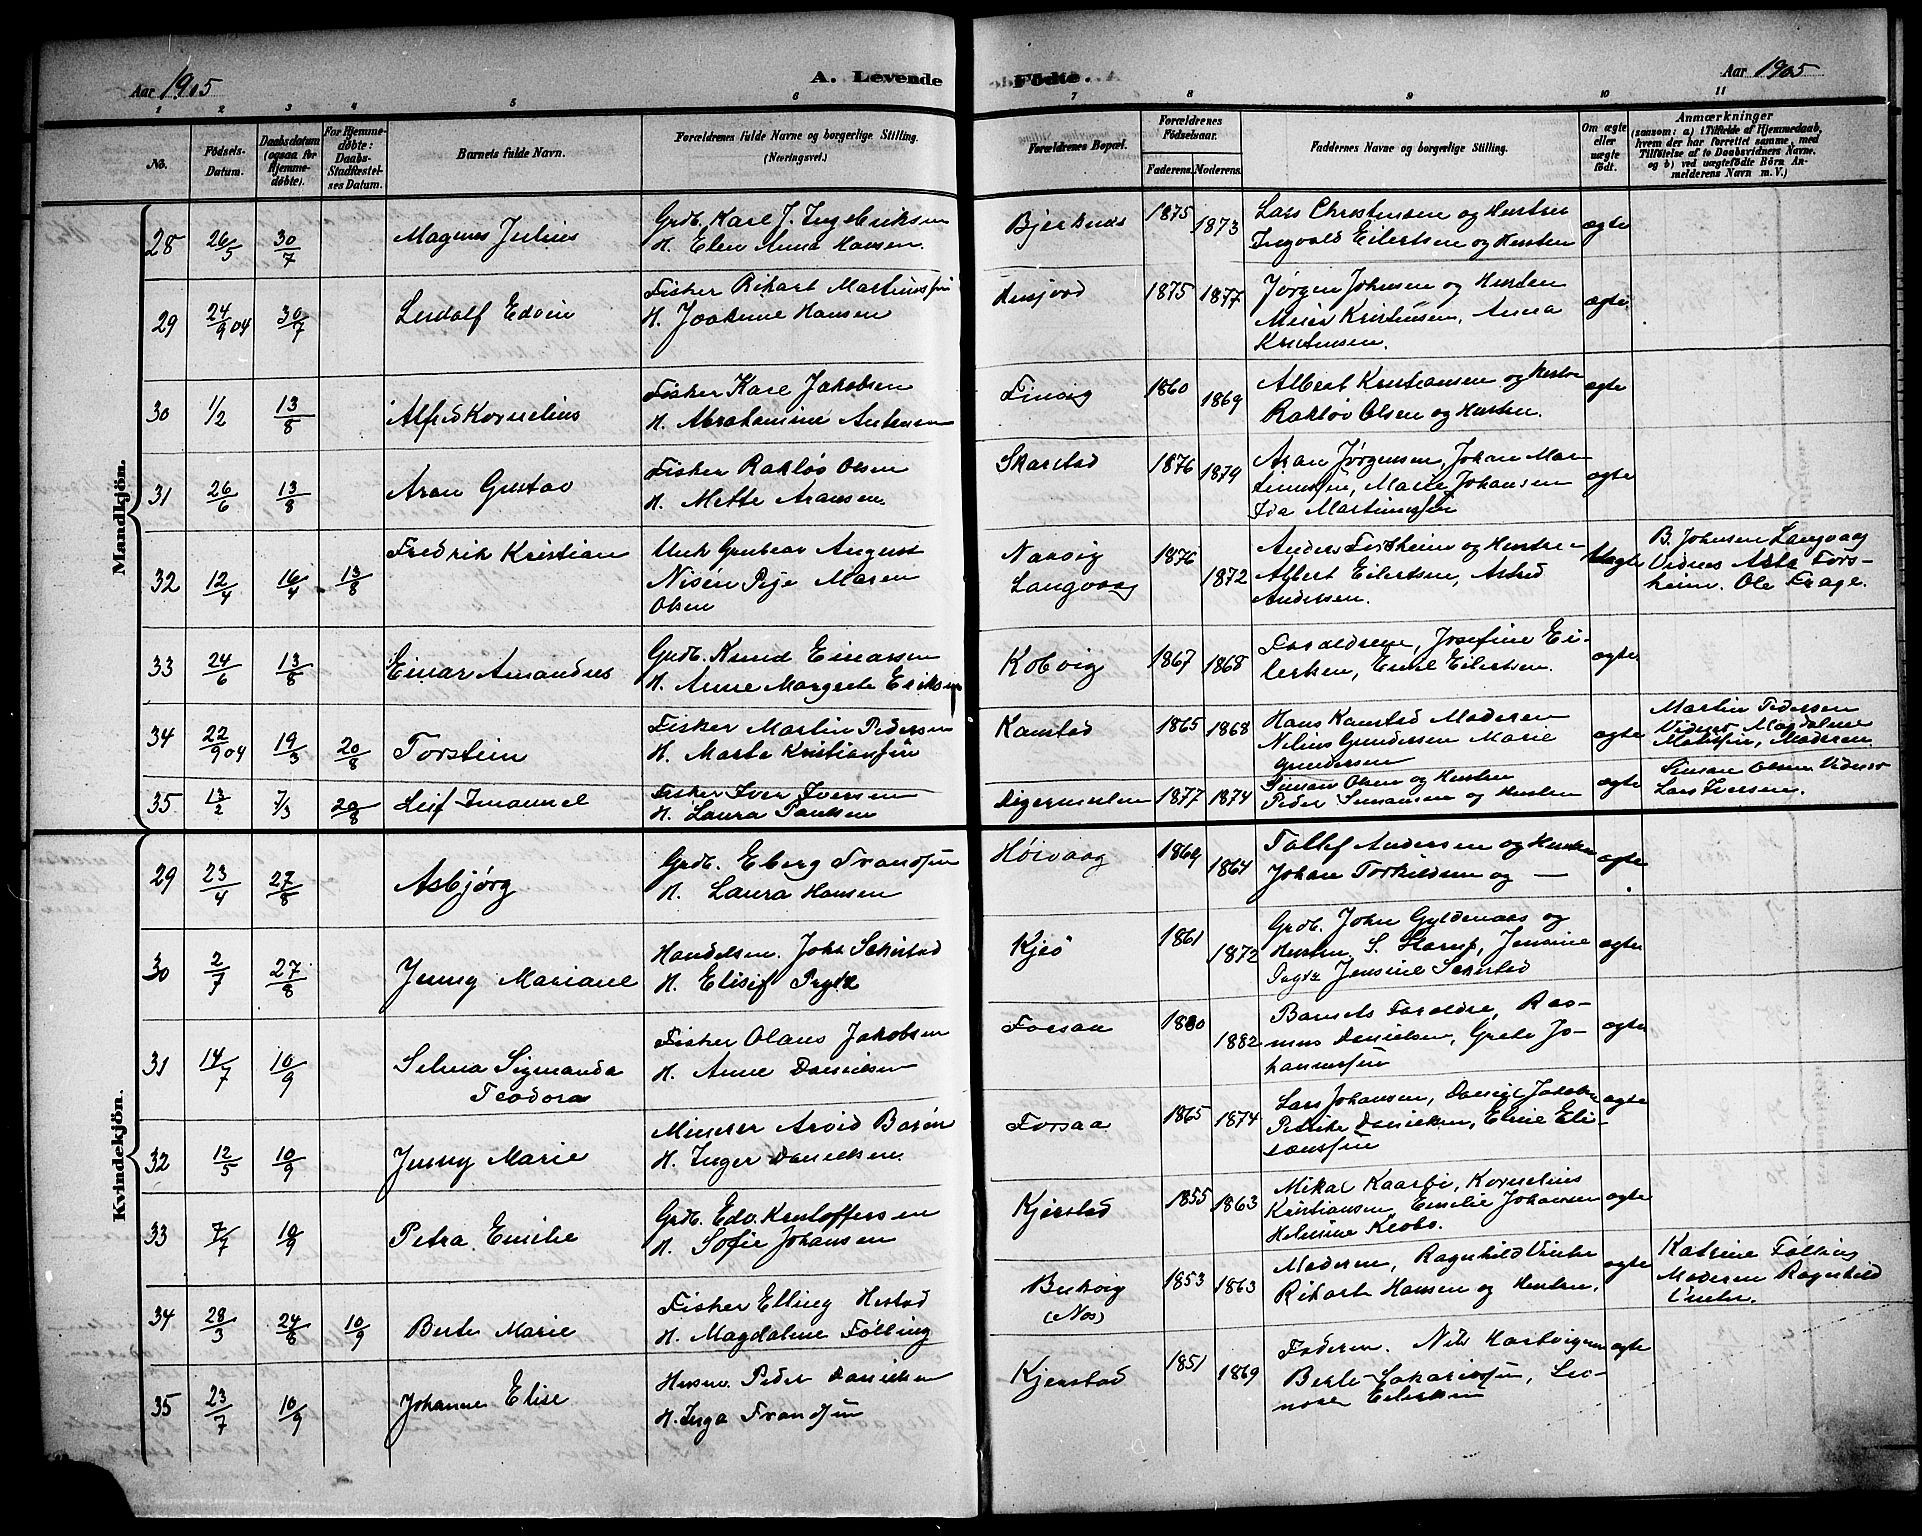 Aar 1905
A. Levende
Fødte.
Aar 1905
1 2 3 4 5 6 7 8 9 10 11
No.
Fødsels-
Datum.
Daabsdatum
(ogsaa for
Hjemme-
døbte).
For Hjemme-
døbte:
Daabs-
Stadfæstel-
ses Datum.
Barnets fulde Navn.
Forældrenes fulde Navne og borgerlige Stilling.
(Næringsvei.)
Forældrenes Bopæl.
Forældrenes
Fødselsaar.
Faderens. Moderens.
Faddernes Navne og borgerlige Stilling.
Om ægte
eller
uægte
født.
Anmærkninger
(saasom: a) i Tilfælde af Hjemmedaab,
hvem der har forrettet samme, med
Tilføielse af to Daabsvidners Navne.
og b) ved uægtefødte Børn An-
melderens Navn m. V.)
Mandkjön.
28 26/5 30/7 Magnus Julius
Grdb. Karl J. Ing. Eriksen
H. Elen Anna Hansen
1875 1873
Lars Christensen og Hustru
Ingvald Eilertsen og Hustru
ægte
29 24/9 04 30/7 Leidolf Edvin
Fisker Rikart Martinussen
H. Joakime Hansen
1875 1877
Jørgen Johnsen og Hustru
Meier Kristensen, Anna
Kristensen.
ægte
30 1/2 13/8 Alfred Kornelius
Fisker Karl Jakobsen
H. Abrahamine Antonsen
Finvig 1860 1869
Albert Kristiansen og Hustru
Rakløv Olsen og Hustru.
ægte
31 26/6 13/8 Aron Gustav
Fisker Rakløv Olsen
H. Mette Aronsen
Skarstad 1876 1879
Aron Jørgensen, Johan Mar-
tinussen, Marie Johansen
Ida Martinussen
ægte
32 12/4 16/4 13/8 Fredrik Kristian
Unk Grubear August
Nisen Pige Maren
Olsen
Narvig
Langvaag
1876 1872
Anders Forsheim og Hustru
Albert Eilertsen, Astrid
Andersen.
Uægte
B. Johnsen Langvaag
Vidnes Asta Fors-
heim. Ole Frage.
33 24/6 13/8 Einar Amandus
Grdb. Knud Einarsen
H. Anne Margrete Eriksen
Kobvig 1867 1868
Forældrene, Josefine Ei-
lertsen, Emil Eilertsen.
ægte
34 22/9 04 19/3 20/8 Torstein
Fisker Martin Pedersen
H. Marta Kristiansen
Kanstad 1865 1868
Hans Kanstad Moderen
Nilius Gundersen Marie
Gundersen
ægte
Martin Pedersen
Vidnet Magdalene
Matissen, Moderen
35 13/2 7/3 20/8 Leif Imanuel
Fisker Iver Iversen
H. Laura Paulsen
Digermulen 1877 1874
Simon Olsen og Hustru
Peder Simonsen og Hustru
ægte
Simon Olsen Vidnet
Lars Iversen.
Kvindekjön.
29 23/4 27/8 Asbjørg
Grdb. Eberg Frandsen
H. Laura Hansen
Høivaag 1864 1864
Tollef Andersen og Hustru
Johan Torkildsen og —
ægte
30 2/7 27/8 Jenny Mariane
Handelsm. Joh. Schistad
H. Elisif Prytz
Kjeø 1861 1872
Grdb. John Gyldenaas og
Hustru, S. Storup, Jensine
Prytz Jensine Schistad
ægte
31 14/7 10/9 Selma Sigmanda
Teodora
Fisker Olaus Jakobsen
H. Anne Danielsen
Forsaa 1880 1882
Barnets Forældre, Ras-
mus Danielsen, Grete Jo-
hannessen
ægte
32 12/5 10/9 Jenny Marie
Minerer Arvid Barøn
H. Inger Danielsen
Forsaa 1865 1874
Lars Johansen, Daniel Jakobsen
Petrike Danielsen, Eline Eli-
ægte
33 7/7 10/9 Petra Emilie
Grdb. Edv. Kristoffersen
H. Sofie Johansen
Kjerstad 1855 1863
Mikal Kaarbø, Kornelius
Kristiansen, Emilie Johansen
Helmine Klobo.
ægte
34 28/3 24/6 10/9 Berte Marie
Fisker Elling Hestad
H. Magdalene Følling
Bukvig
(Nos)
1853 1863
Moderen, Ragnhild Vinter
Rikart Hansen og Hustru.
ægte
Katrine Følling
Moderen Ragnhild
Vinter.
35 23/7 10/9 Johanne Elise
Husm. Peder Danielsen
H. Inga Frandsen
Kjerstad 1851 1869
Faderen. Nils Hartvigsen
Berte Sakariassen, Leo-
nora Eilertsen
ægte